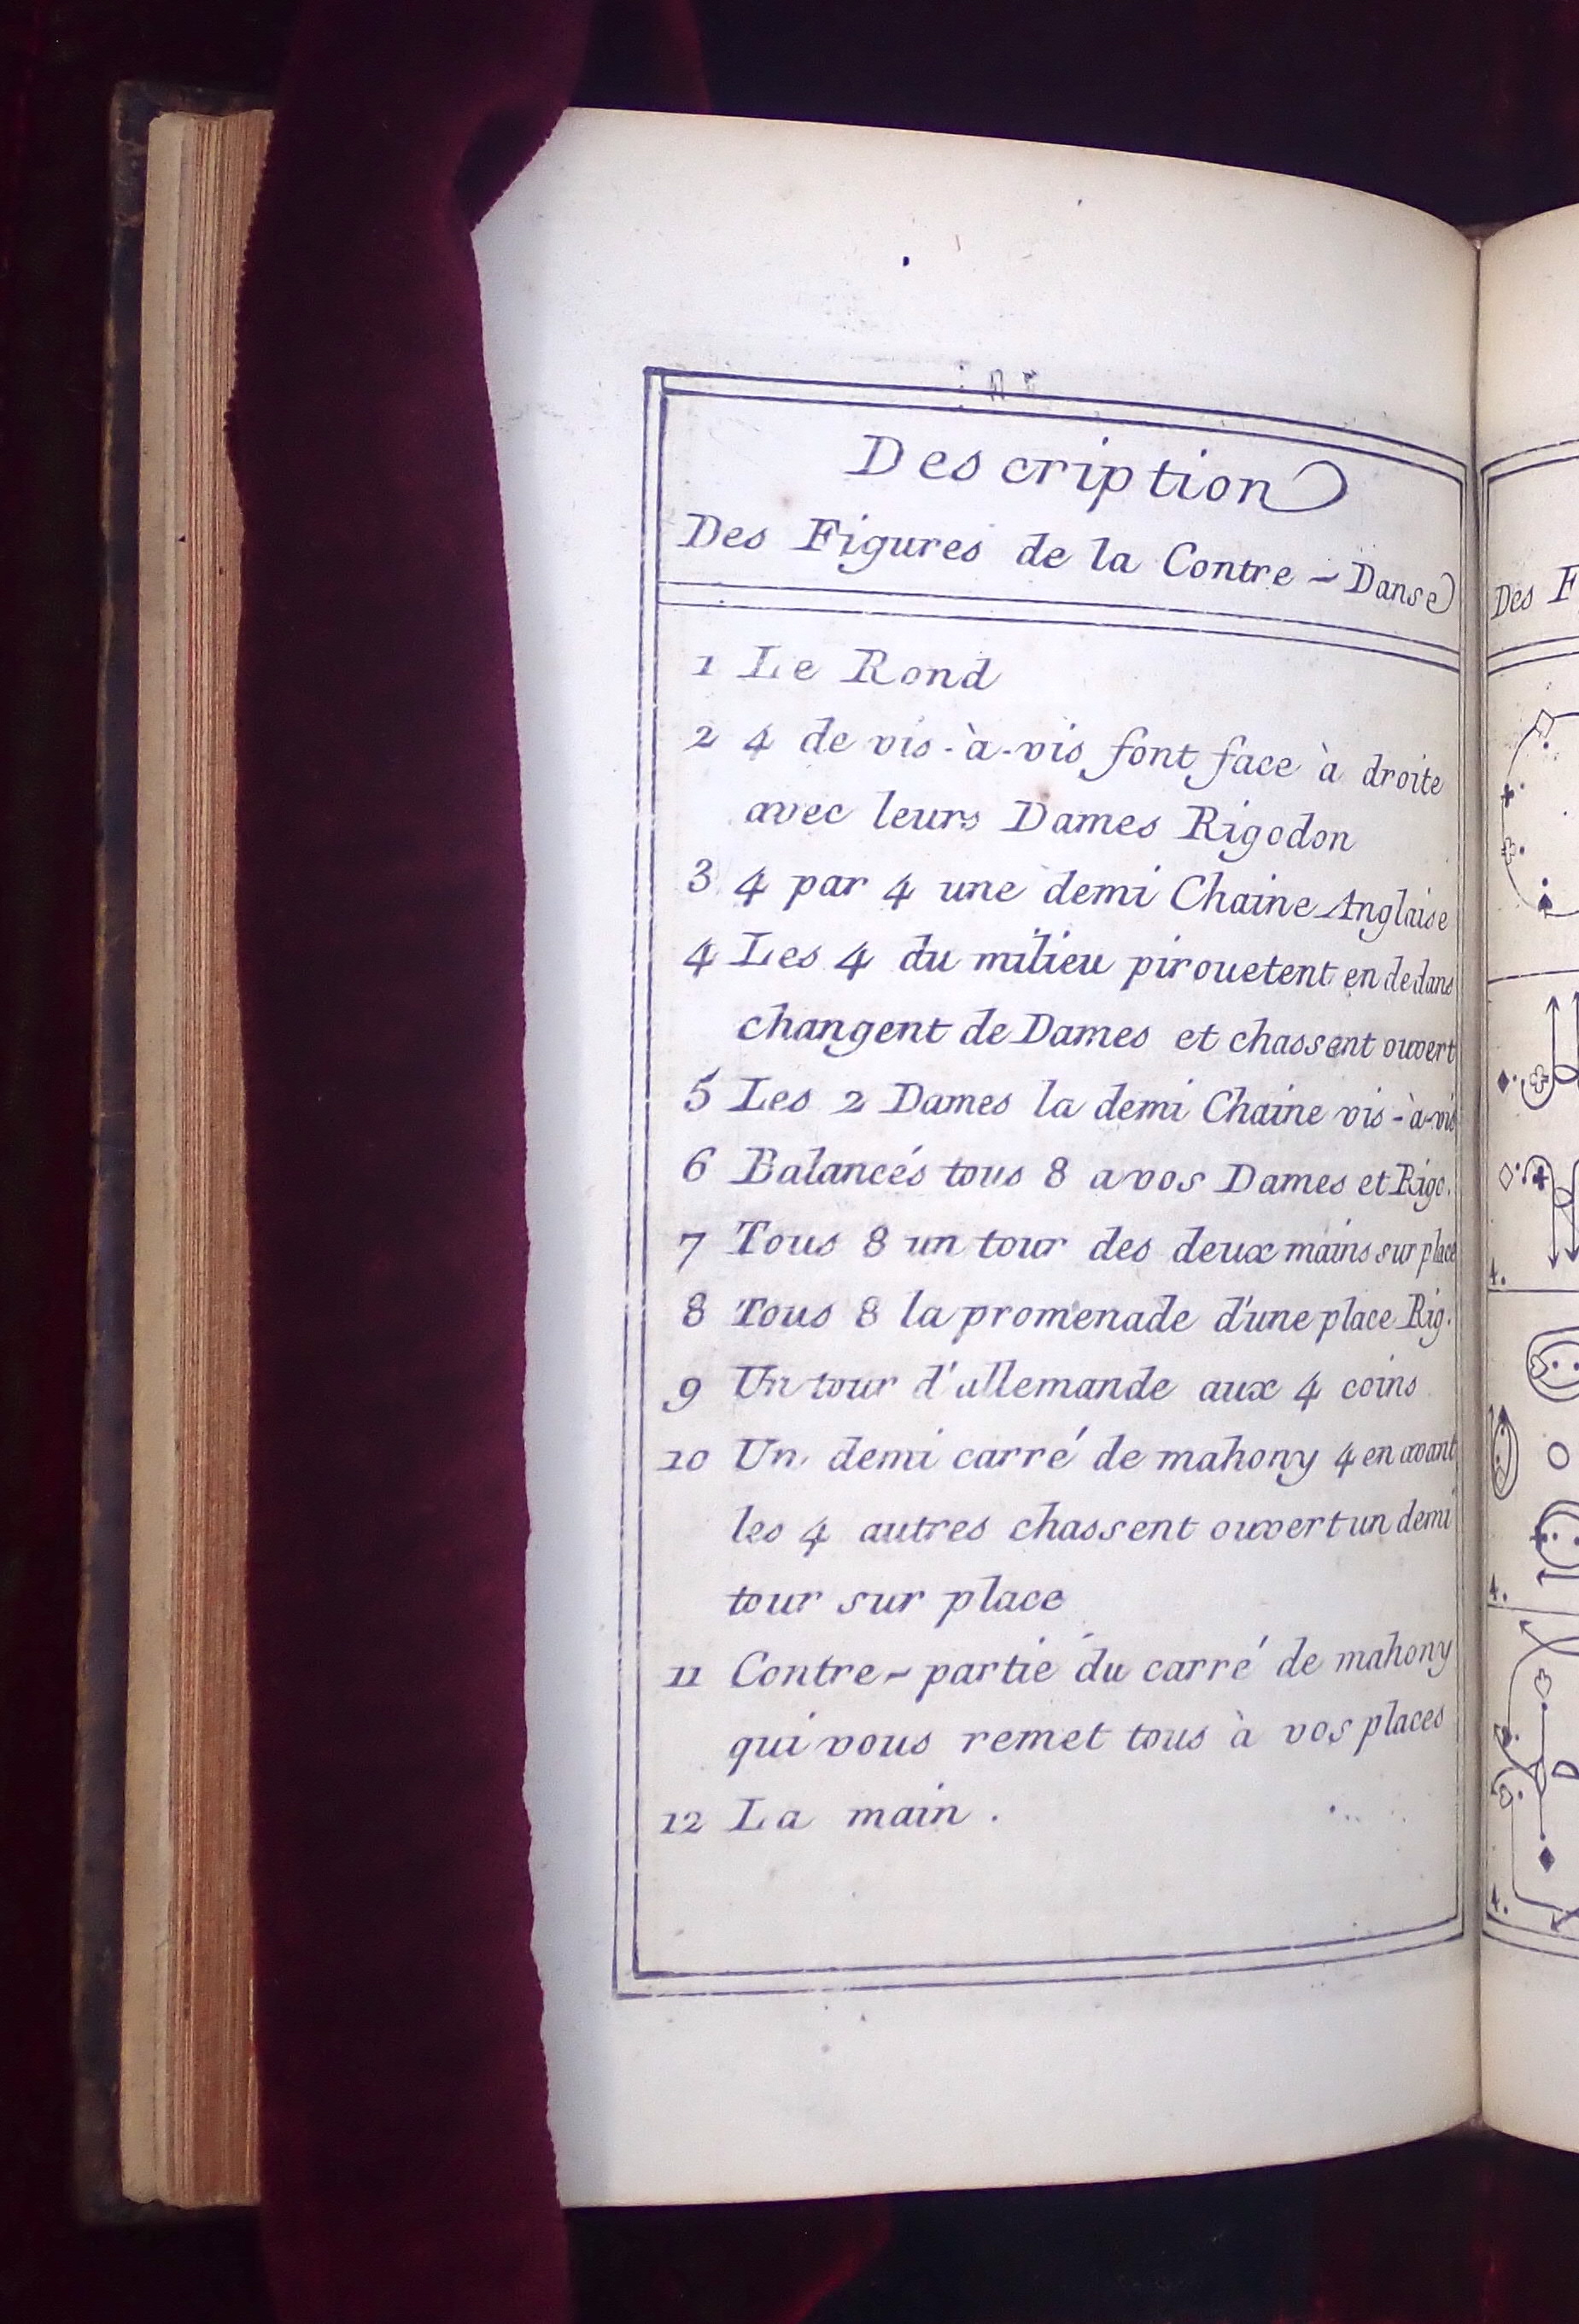 Description
Des Figures de la Contre-Danse
1 Le Rond
2 4 de vis-à-vis font face à droite
avec leurs Dames Rigodon
3 4 par 4 une demi Chaine Anglaise
4 Les 4 du milieu pirouetent en dedans
changent de Dames et chassent ouvert
5 Les 2 Dames la demi Chaine vis-à-vis
6 Balancés tous 8 a vos Dames et Rigo.
7 Tous 8 un tour des deux mains sur place
8 Tous 8 la promenade d'une place Rig.
9 Un tour d'allemande aux 4 coins
10 Un demi carré de mahony 4 en avant
les 4 autres chassent ouvert un demi
tour sur place
11 Contre-partie du carré de mahony
qui vous remet tous à vos places
12 La main.
Des F
4.
4.
4.